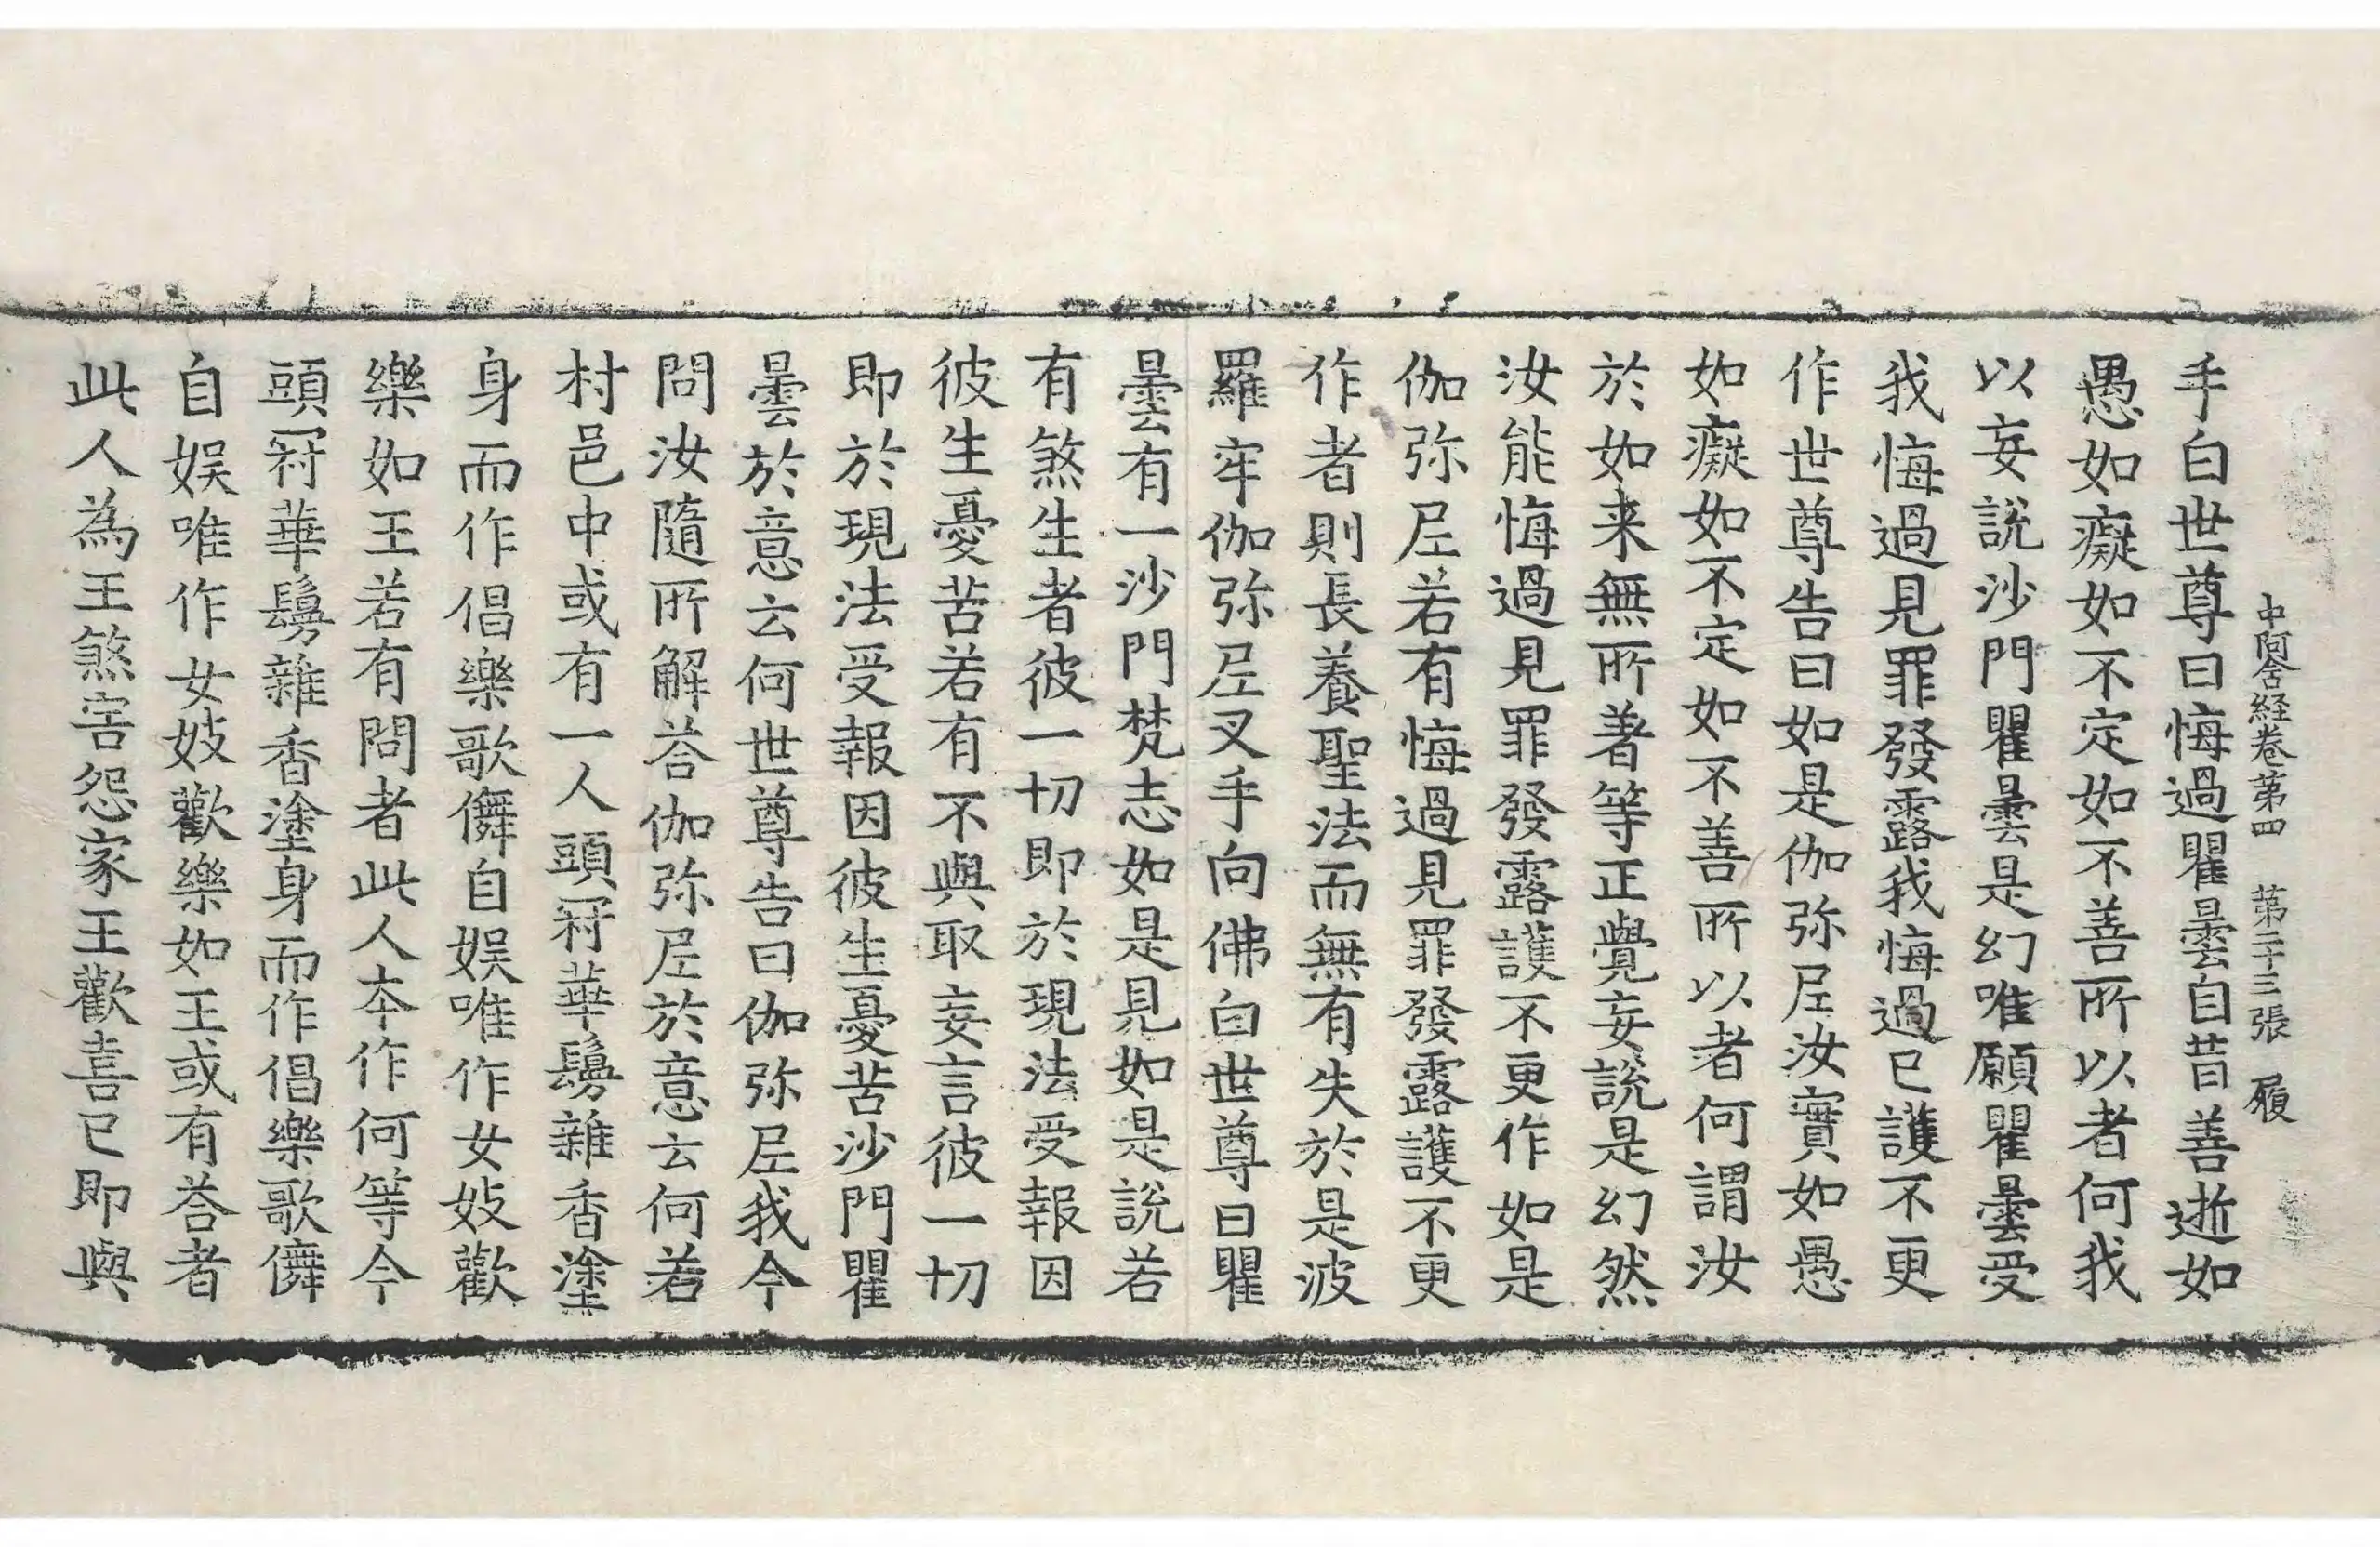 中阿含経卷苐四　苐二十三張　履
手白世尊曰悔過瞿曇自首善逝如
愚如癡如不定如不善所以者何我
以妄說沙門瞿曇是幻唯願瞿曇受
我悔過見罪發露我悔過已護不更
作世尊告曰如是伽弥尼汝實如愚
如癡如不定如不善所以者何謂汝
於如来無所著等正覺妄說是幻然
汝能悔過見罪發露護不更作如是
伽弥尼若有悔過見罪發露護不更
作者則長養聖法而無有失於是波
羅牢伽弥尼叉手向佛白世尊曰瞿
曇有一沙門梵志如是見如是說若
有煞生者彼一切即於現法受報因
彼生憂苦若有不與取妄言彼一切
即於現法受報因彼生憂苦沙門瞿
曇於意云何世尊告曰伽弥尼我今
問汝隨所解荅伽弥尼於意云何若
村邑中或有一人頭冠華鬘雜香塗
身而作倡樂歌儛自娱唯作女妓歡
樂如王若有問者此人本作何等今
頭冠華鬘雜香塗身而作倡樂歌儛
自娱唯作女妓歡樂如王或有荅者
此人為王煞害怨家王歡喜已即與